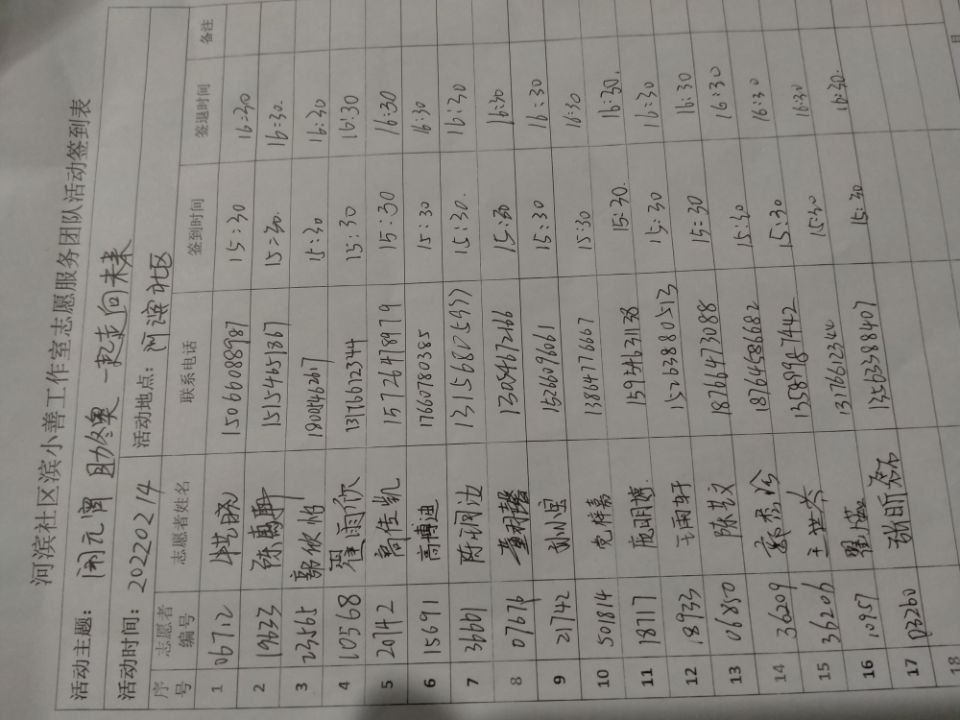 河滨社区滨小善工作室志愿服务团队活动签到表
活动主题：闹元宵 助冬奥 一起走向未来
活动时间：20220214 活动地点：河滨社区
序号 志愿者编号 志愿者姓名 联系电话 签到时间 签退时间 备注
1 06712 15066088987 15:30 16:30
2 19633 15154651867 15:30 16:30
3 23565 郭欣怡 15:30 16:30
4 10568 崔雨欣 13176612344 15:30 16:30
5 20742 高佳凯 15726478979 15:30 16:30
6 15691 高博迪 17667780385 15:30 16:30
7 36601 13156805977 15:30 16:30
8 07676 13054672166 15:30 16:30
9 21742 15266096061 15:30 16:30
10 501814 13864776667 15:30 16:30
11 18717 15954631138 15:30 16:30
12 18933 王雨轩 15263880513 15:30 16:30
13 06850 18766473088 15:30 16:30
14 36209 18764686682 15:30 16:30
15 36206 王世英 13589987442 15:30 16:30
16 10957 13176612344 15:30 16:30
17 03260 13563838407 15:30 16:30
18